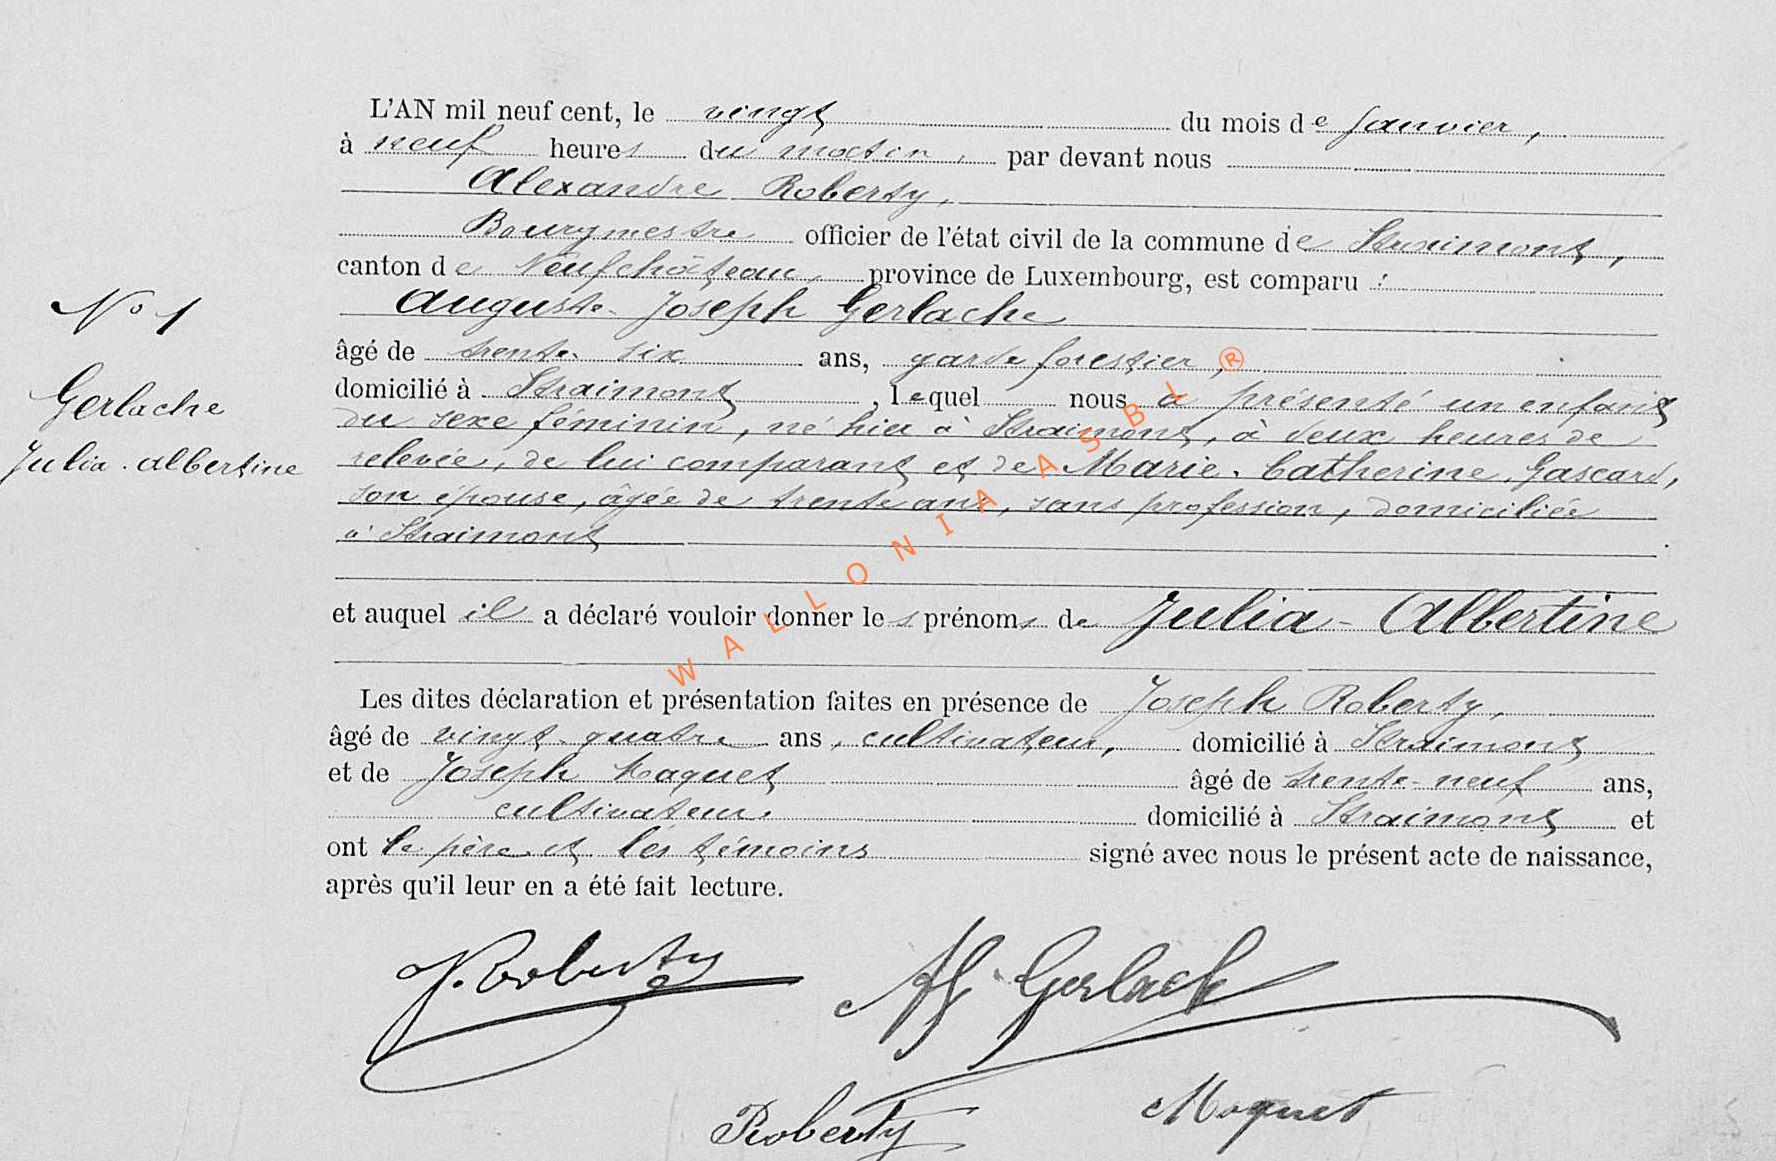 L'AN mil neuf cent, le vingt du mois de Janvier,
à neuf heures du matin, par devant nous
Alexandre Roberty,
Bourgmestre officier de l'état civil de la commune de Straimont,
canton de Neufchâteau, province de Luxembourg, est comparu :
Auguste-Joseph Gerlache
âgé de trente-six ans, garde forestier,
domicilié à Straimont, lequel nous a présenté un enfant
du sexe féminin, né hier à Straimont, à deux heures de
relevée, de lui comparant et de Marie-Catherine Gascard,
son épouse, âgée de trente ans, sans profession, domiciliée
à Straimont
et auquel il a déclaré vouloir donner les prénoms de Julia-Albertine
Les dites déclaration et présentation faites en présence de Joseph Roberty,
âgé de vingt-quatre ans, cultivateur, domicilié à Straimont
et de Joseph Maquet âgé de trente-neuf ans,
cultivateur, domicilié à Straimont et
ont le père et les témoins signé avec nous le présent acte de naissance,
après qu'il leur en a été fait lecture.
No 1
Gerlache
Julia-Albertine
J. Roberty
AJ. Gerlache
Roberty
Maquet
WALLONIA ASBL ®